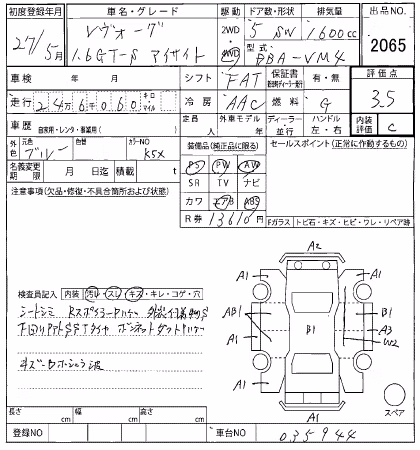 初度登録年月
車名・グレード
駆動 ドア数・形状 排気量
出品NO.
27/5月
レヴォーグ
1.6GT-S アイサイト
2WD 4WD
5 SW 1600cc
型式
DBA-VM4
2065
車検 年 月
シフト FAT
保証書 有・無
評価点
3.5
走行 246060 キロ マイル
冷房 AAC
燃料 G
車歴 自家用・レンタ・事業用( )
定員 人
外車モデル 年
ディーラー 並行
ハンドル 左・右
内装評価 C
外色 元色 ブルー 色替 カラーNO K5X
装備品(純正品に限る)
セールスポイント(正常に作動するもの)
名義変更期限 月 日迄 積載 t
PS PW AW
SR TV ナビ
カワ エアB ABS
注意事項(欠品・修復・不具合箇所および状態)
R券 13610円
Fガラス トビ石・キズ・ヒビ・ワレ・リペア跡
A2
A1 A1
AB1 B1 B1
A3
W2
A1 A1
A1
スペア
検査員記入 内装 汚れ・スレ・キズ・キレ・コゲ・穴
シートシミ
長さ cm 幅 cm 高さ cm
登録NO
車台NO 035944